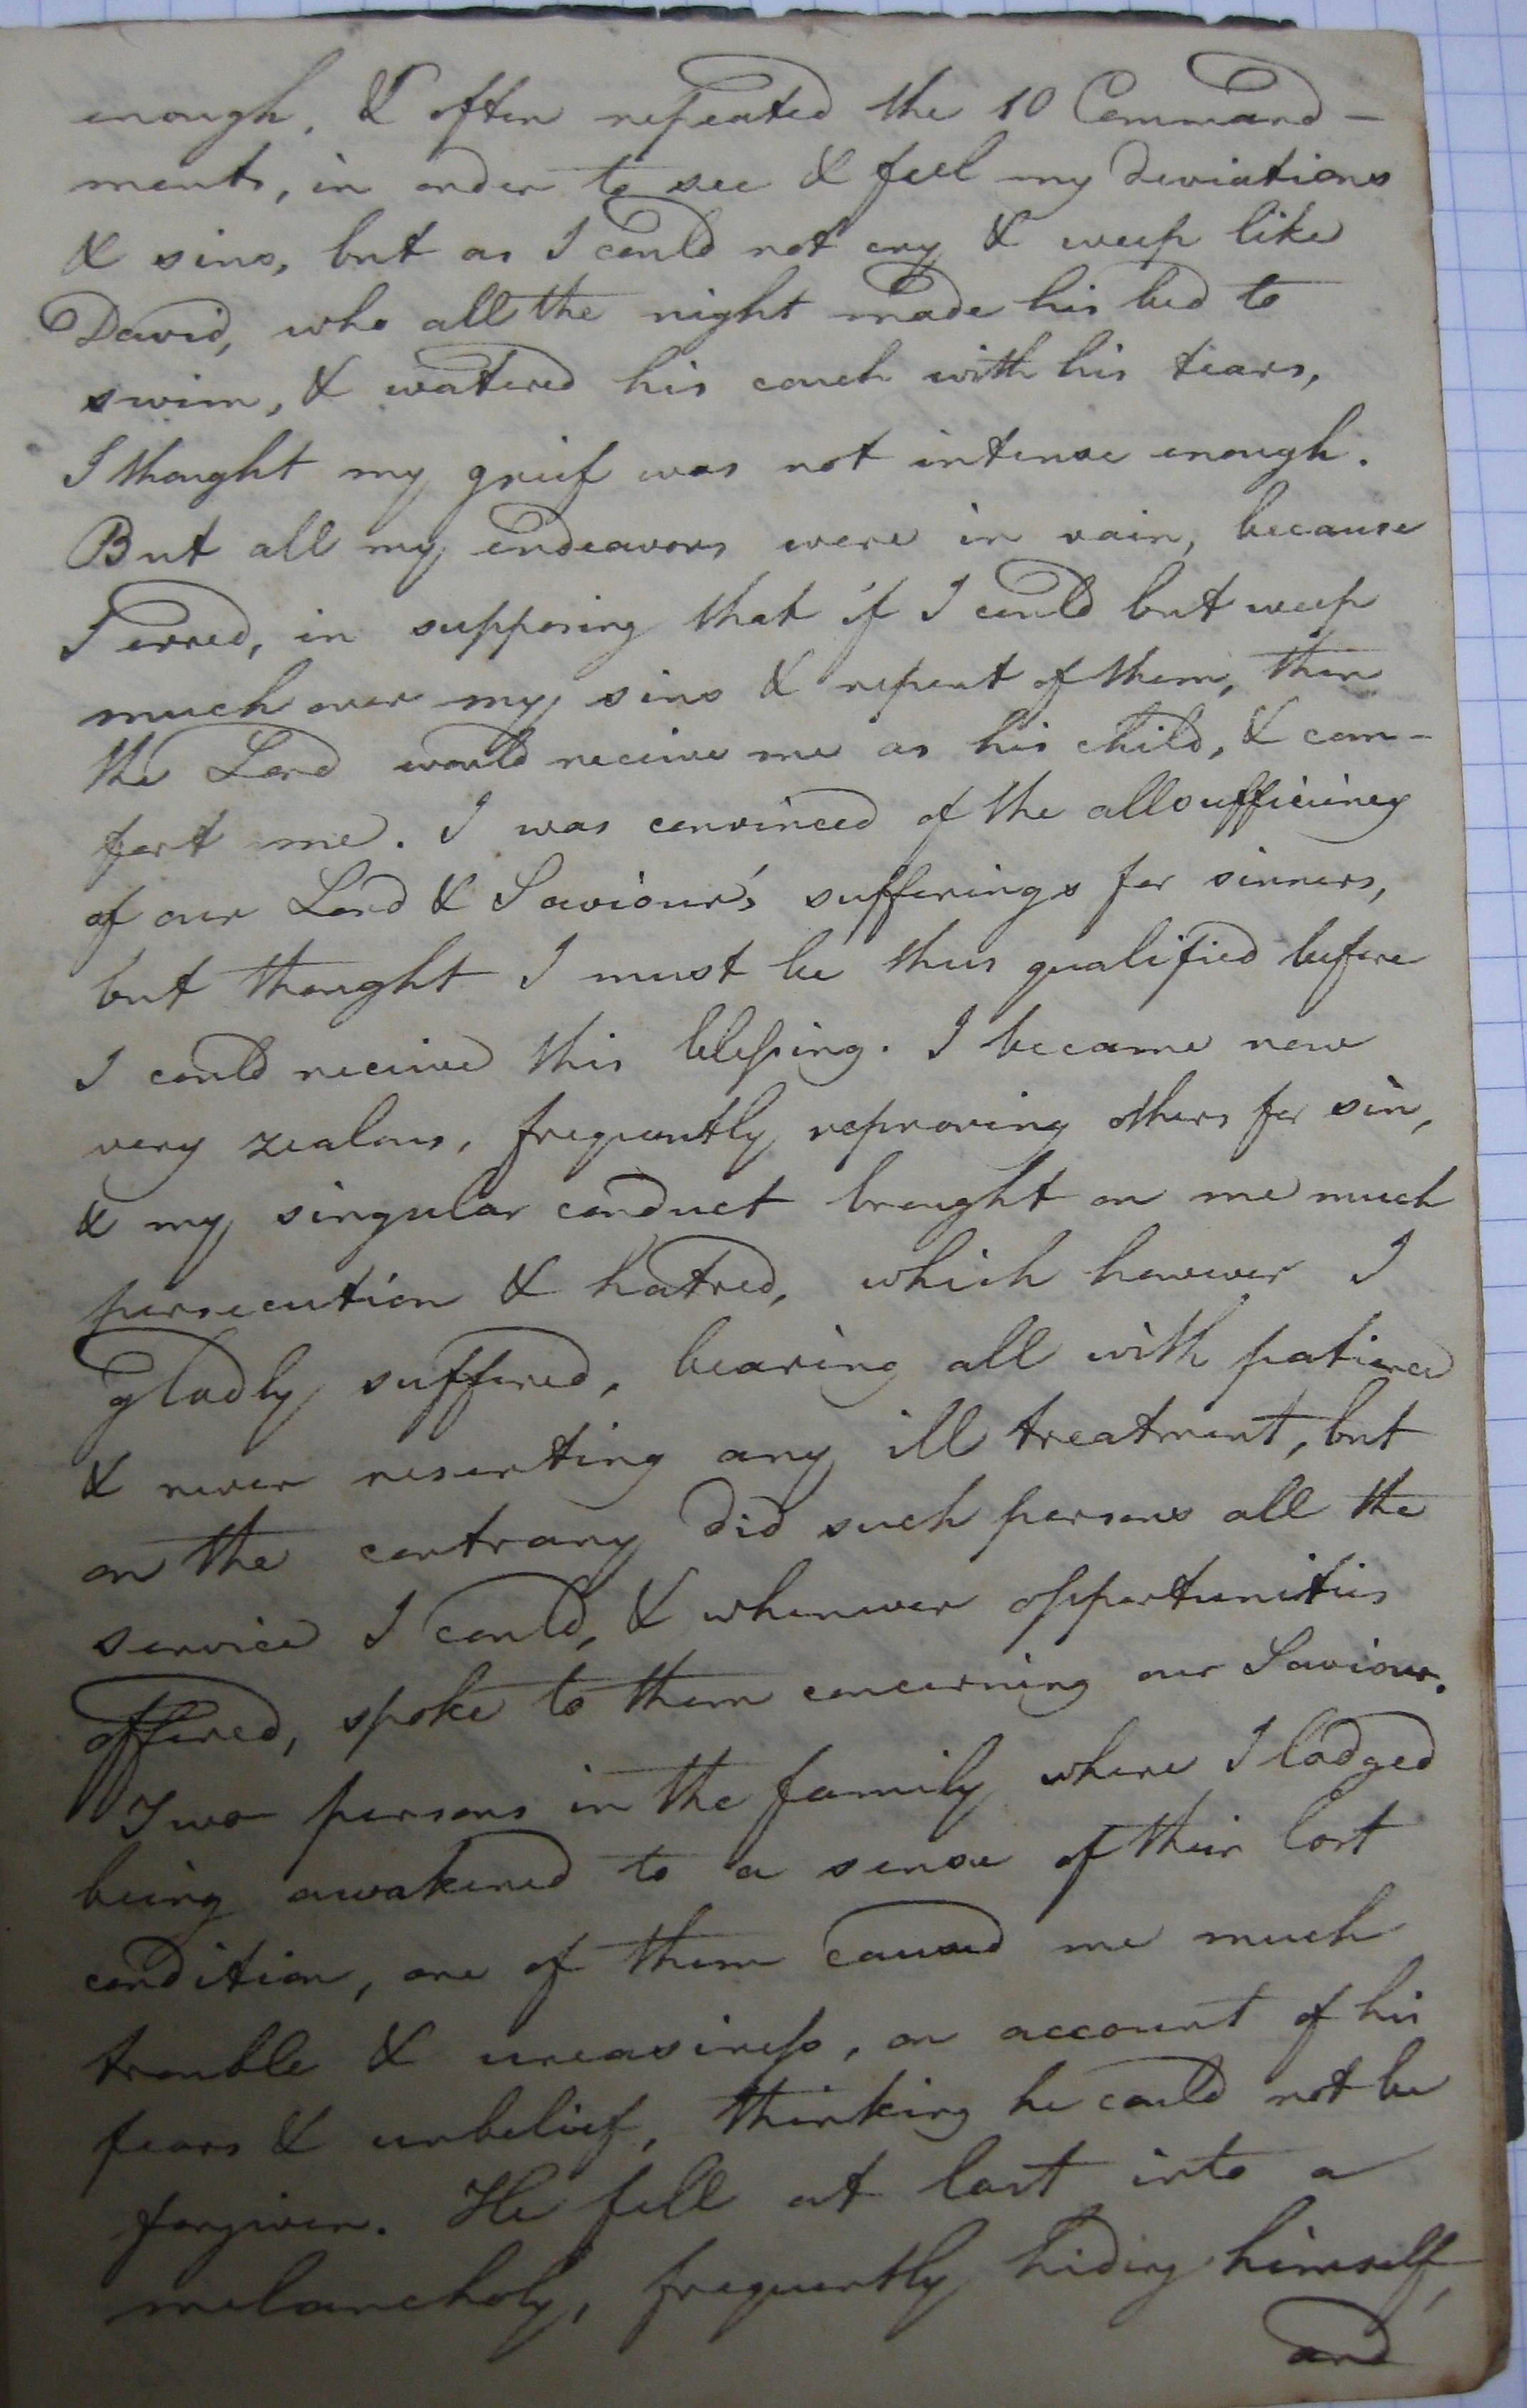 enough, & often repeated the 10 Command-
ments, in order to see & feel my deviations
& sins, but as I could not cry & weep like
David, who all the night made his bed to
swim, & watered his couch with his tears,
I thought my grief was not intense enough.
But all my endeavors were in vain, because
I erred, in supposing that if I could but weep
much over my sins & repent of them, then
the Lord would receive me as his child, & com-
fort me. I was convinced of the allsufficiency
of our Lord & Saviour's sufferings for sinners,
but thought I must be thus qualified before
I could receive this blessing. I became now
very zealous, frequently reproving others for sin,
& my singular conduct brought on me much
persecution & hatred, which however I
gladly suffered, bearing all with patience
& never resenting any ill treatment, but
on the contrary did such persons all the
service I could, & whenever opportunities
offered, spoke to them concerning our Saviour.
Two persons in the family where I lodged
being awakened to a sense of their lost
condition, one of them caused me much
trouble & uneasiness, on account of his
fears & unbelief, thinking he could not be
forgiven. He fell at last into a
melancholy, frequently hiding himself,
and